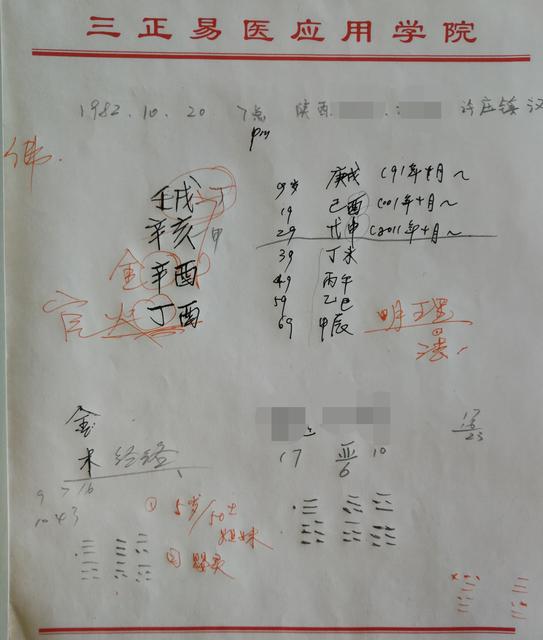 三正易医应用学院
1982.10.20 7点 陕西 许庄镇 汉
pm
佛.
壬戌 丁 9岁 庚戌 (91年十月~
辛亥 甲 19 己酉 (001年十月~
29 戊申 (2011年十月~
金 辛酉 39 丁未
49 丙午
官 火 丁酉 59 乙巳 明理
69 甲辰
金
木 经络
17 亚 10
6
23
9 > 16
1043
① 5岁/50土
姐妹
②